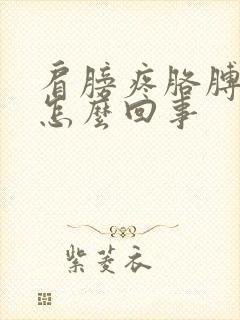 肩膀疼胳膊
怎麼回事
紫菱衣